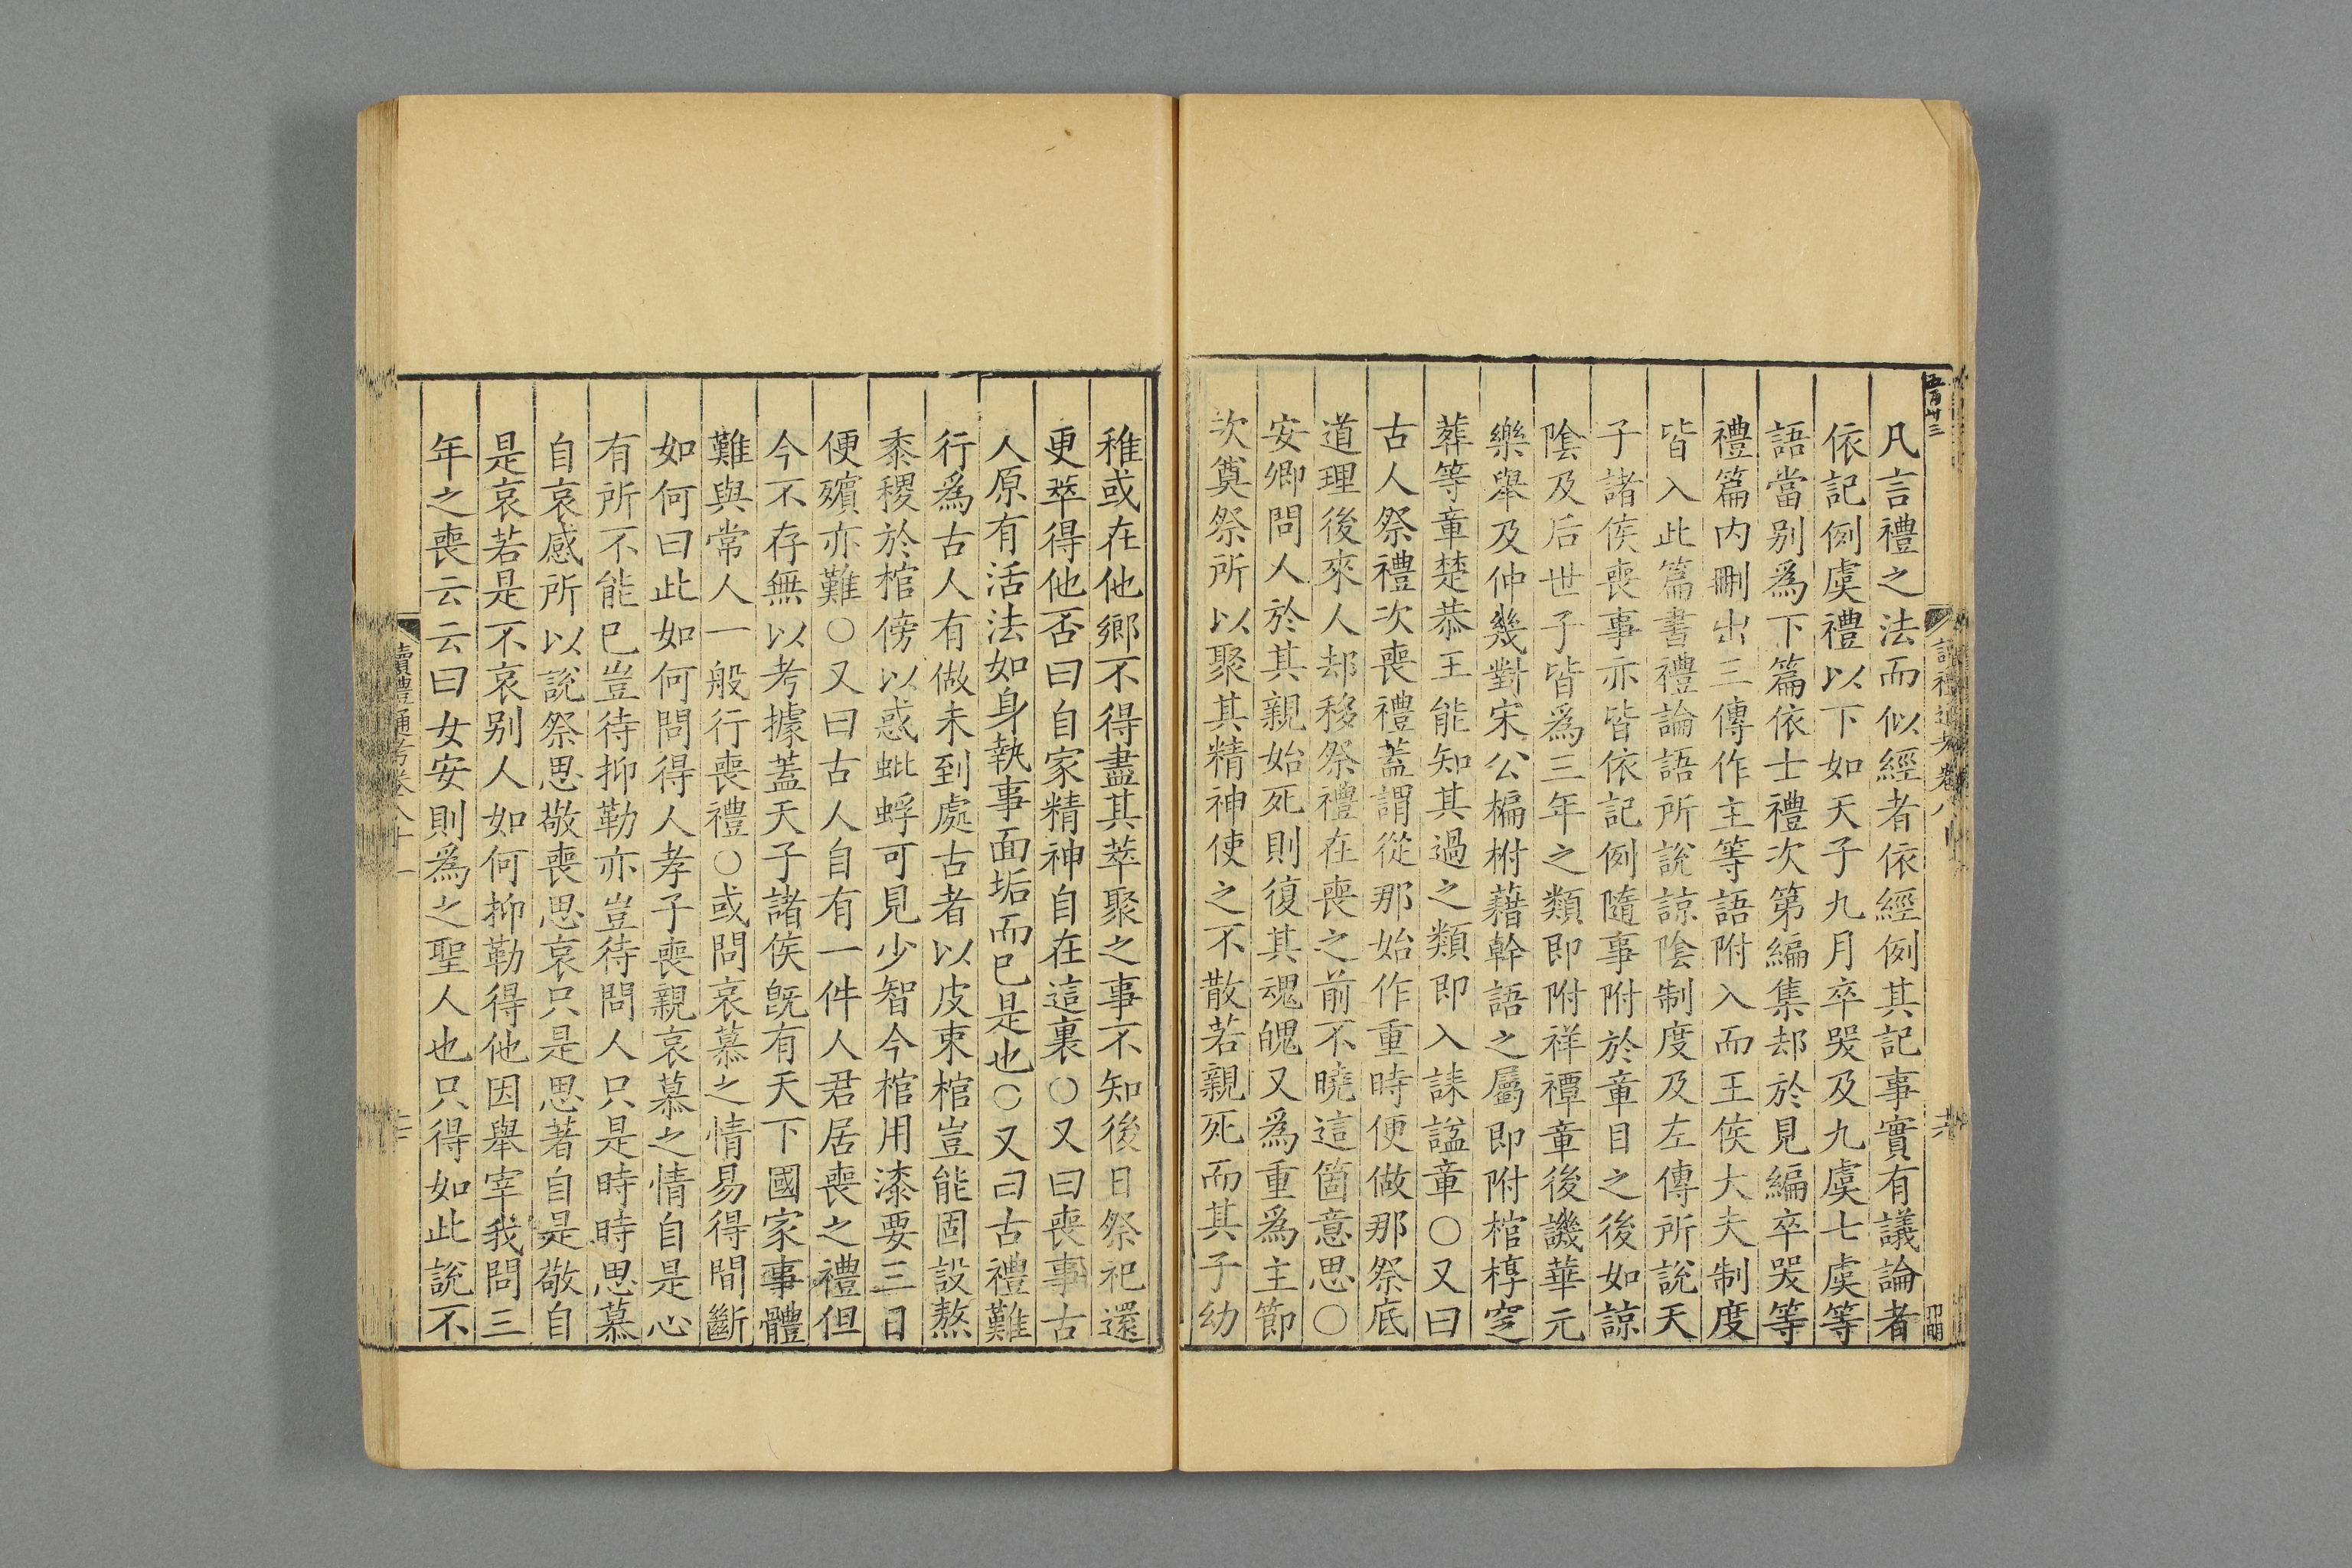 五百卅三
凡言禮之法而似經者依經例其記事實有議論者
依記例虞禮以下如天子九月卒哭及九虞七虞等
語當别爲下篇依士禮次第編集却於見編卒哭等
禮篇内刪出三傳作主等語附入而王侯大夫制度
皆入此篇書禮論語所說諒隂制度及左傳所說天
子諸侯喪事亦皆依記例隨事附於章目之後如諒
隂及后世子皆爲三年之類即附祥禫章後譏華元
樂舉及仲幾對宋公楄柎藉幹語之屬即附棺椁窆
葬等章楚恭王能知其過之類即入誄諡章○又曰
古人祭禮次喪禮蓋謂從那始作重時便做那祭底
道理後來人却移祭禮在喪之前不曉這箇意思○
安卿問人於其親始死則復其魂魄又爲重爲主節
次奠祭所以聚其精神使之不散若親死而其子幼
稚或在他鄉不得盡其萃聚之事不知後日祭祀還
更萃得他否曰自家精神自在這裏○又曰喪事古
人原有活法如身執事面垢而已是也○又曰古禮難
行爲古人有做未到處古者以皮束棺豈能固設熬
黍稷於棺傍以惑蚍蜉可見少智今棺用漆要三日
便殯亦難○又曰古人自有一件人君居喪之禮但
今不存無以考據蓋天子諸侯旣有天下國家事體
難與常人一般行喪禮○或問哀慕之情易得間斷
如何曰此如何問得人孝子喪親哀慕之情自是心
有所不能已豈待抑勒亦豈待問人只是時時思慕
自哀感所以說祭思敬喪思哀只是思著自是敬自
是哀若是不哀别人如何抑勒得他因舉宰我問三
年之喪云云曰女安則爲之聖人也只得如此說不
讀禮通考卷八十一